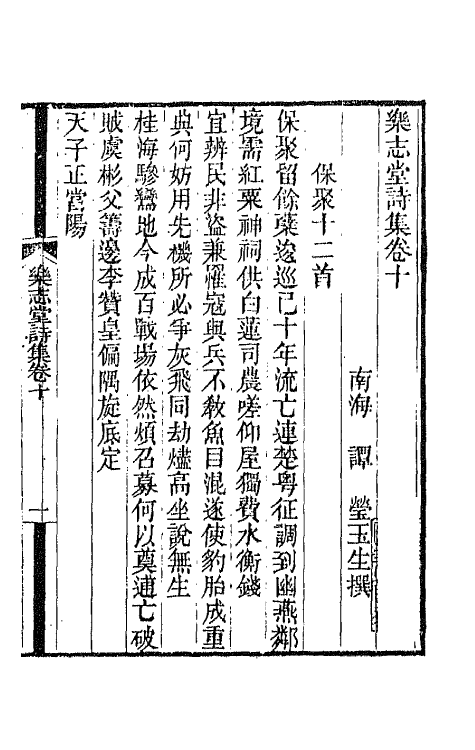 樂志堂詩集卷十
南海 譚 瑩玉生撰
保聚十二首
保聚留餘蘖逡巡已十年流亡連楚粤征調到幽燕鄰
境需紅粟神祠供白蓮司農嗟仰屋獨費水衡錢
宜辨民非盜兼罹寇與兵不教魚目混遂使豹胎成重
典何妨用先機所必爭灰飛同劫燼高坐說無生
桂海驂鸞地今成百戰場依然煩召募何以奠逋亡破
賊虞彬父籌邊李贊皇偏隅旋底定
天子正當陽
樂志堂詩集卷十
一